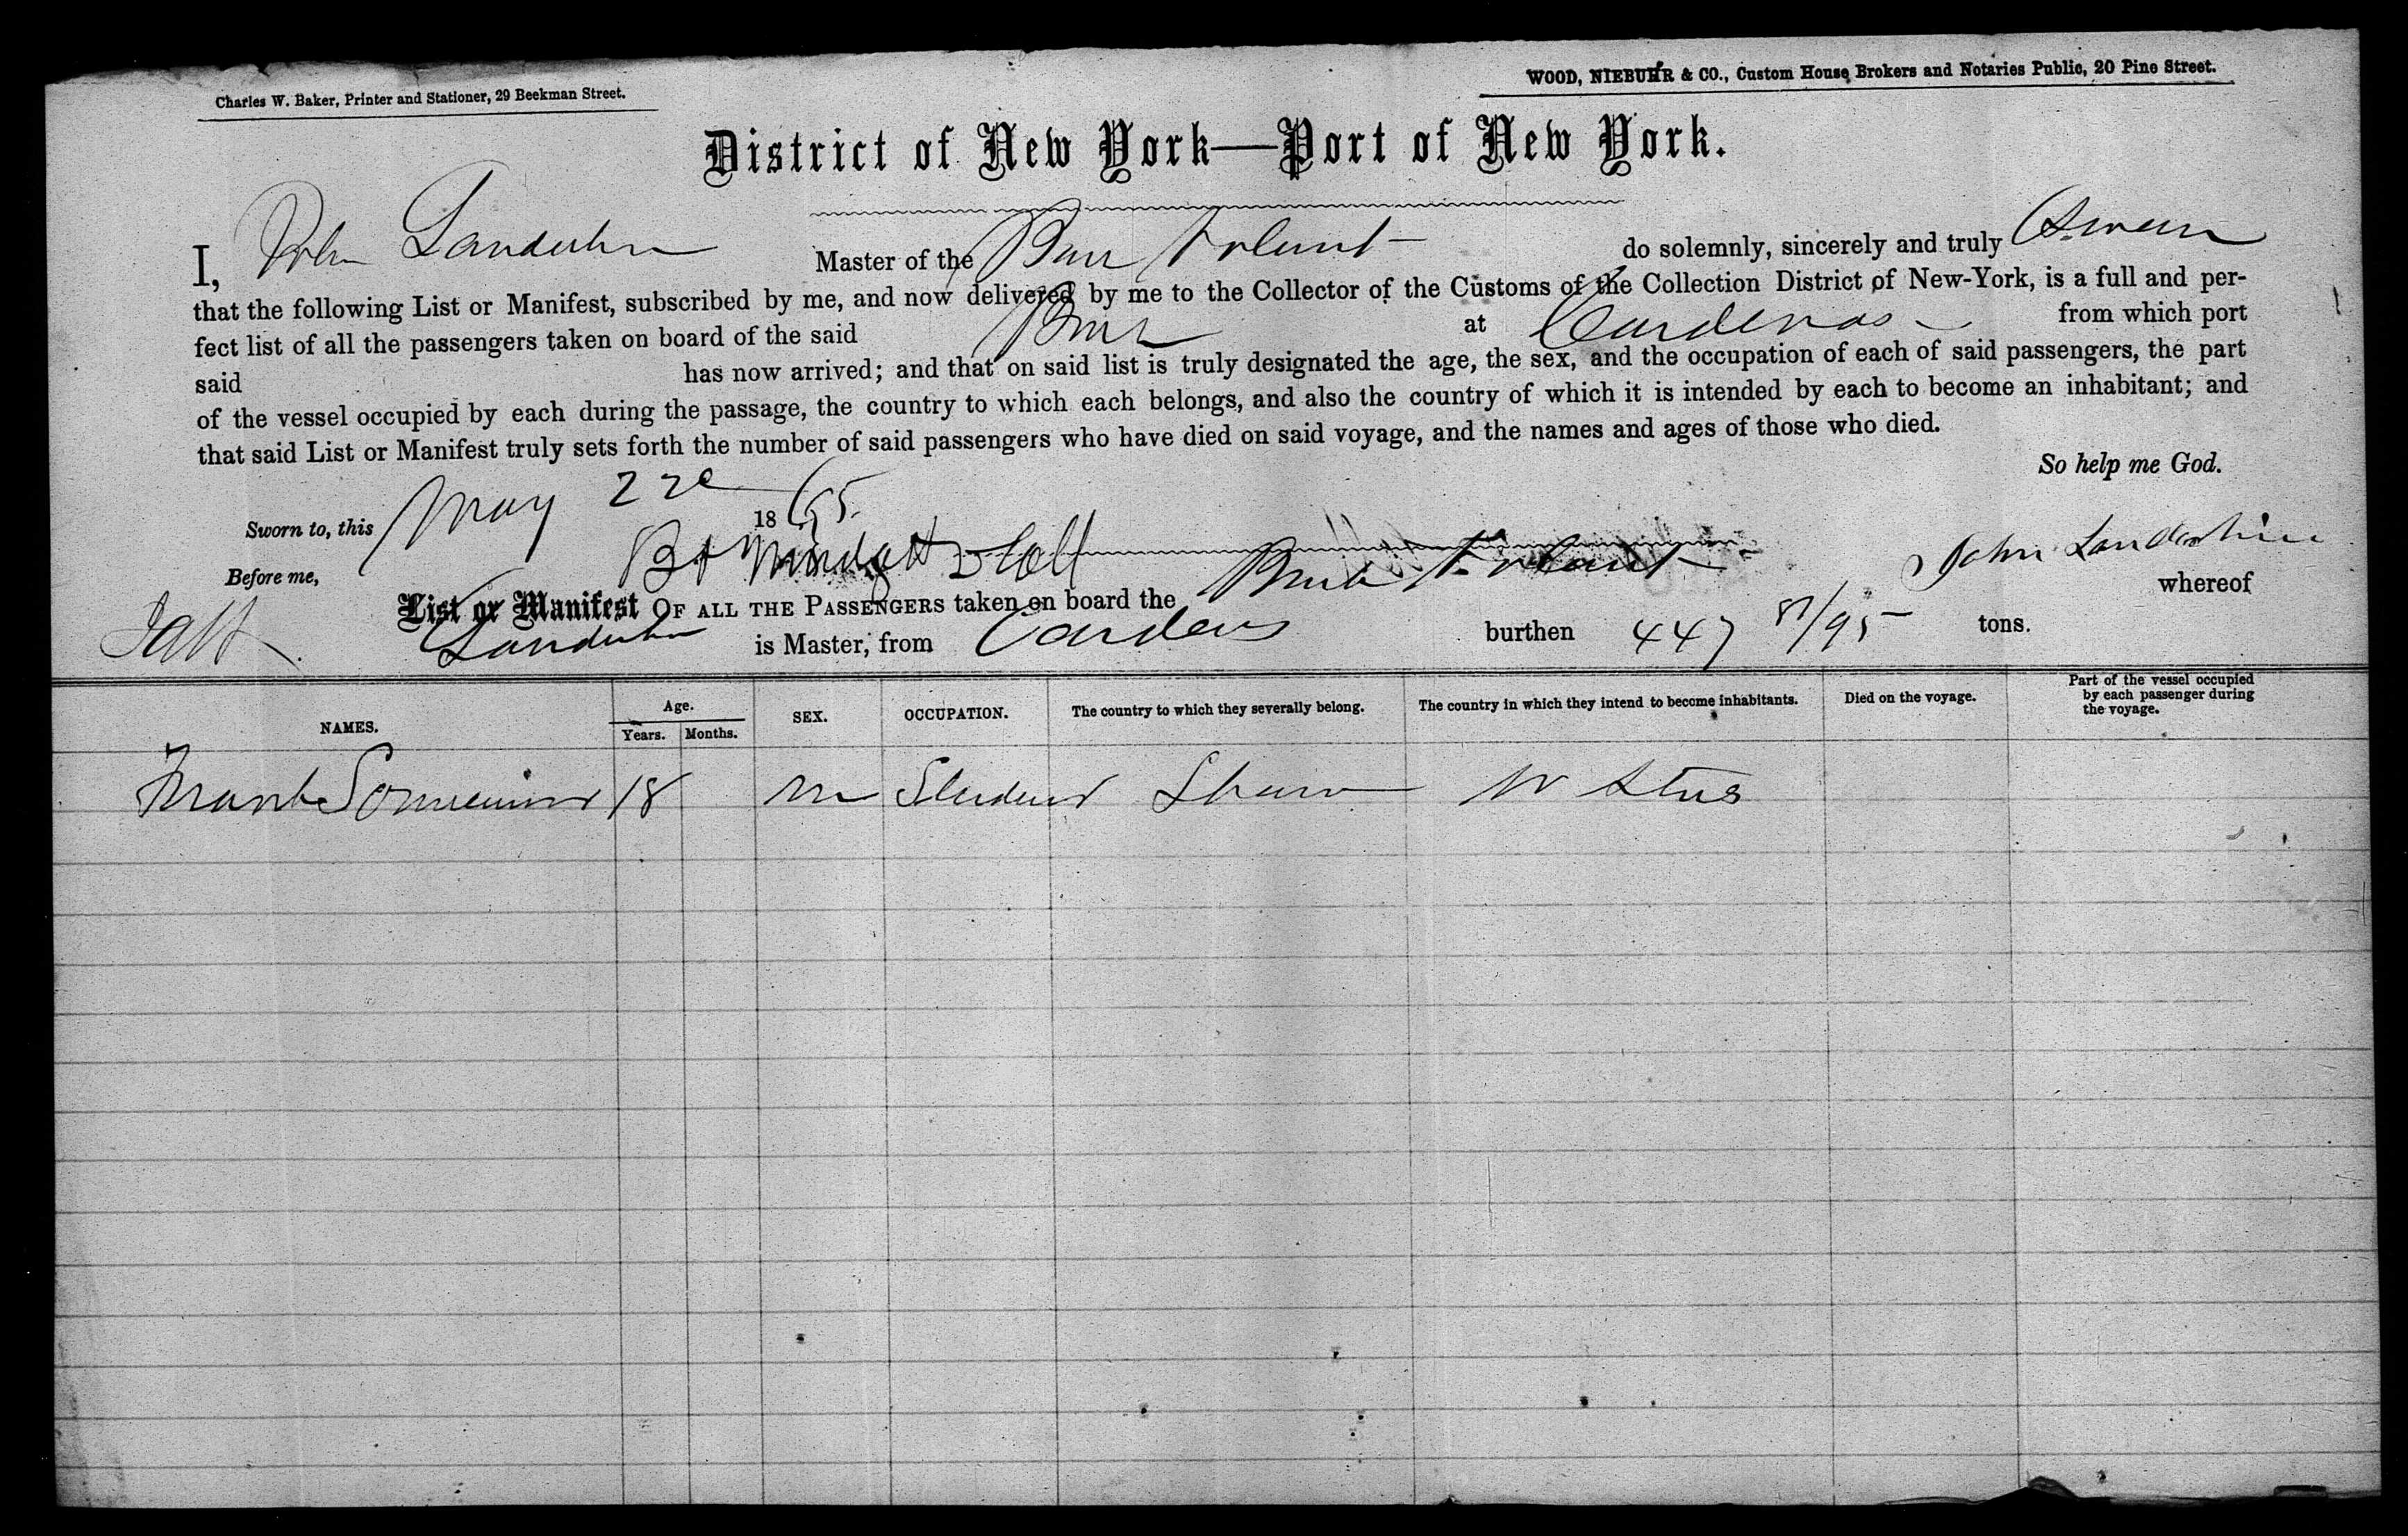 Charles W. Baker, Printer and Stationer, 29 Beekman Street.
WOOD, NIEBUHR & CO., Custom House Brokers and Notaries Public, 20 Pine Street.
District of New York—Port of New York.
I, John Master of the do solemnly, sincerely and truly Swear
that the following List or Manifest, subscribed by me, and now delivered by me to the Collector of the Customs of the Collection District of New-York, is a full and per-
fect list of all the passengers taken on board of the said at Cardenas from which port
said has now arrived; and that on said list is truly designated the age, the sex, and the occupation of each of said passengers, the part
of the vessel occupied by each during the passage, the country to which each belongs, and also the country of which it is intended by each to become an inhabitant; and
that said List or Manifest truly sets forth the number of said passengers who have died on said voyage, and the names and ages of those who died.
So help me God.
Sworn to, this May 22d 1865.
Before me, John
List or Manifest OF ALL THE PASSENGERS taken on board the whereof
is Master, from burthen 447 tons.
NAMES.
Age.
Years. Months.
SEX.
OCCUPATION.
The country to which they severally belong.
The country in which they intend to become inhabitants.
Died on the voyage.
Part of the vessel occupied
by each passenger during
the voyage.
18 m Student